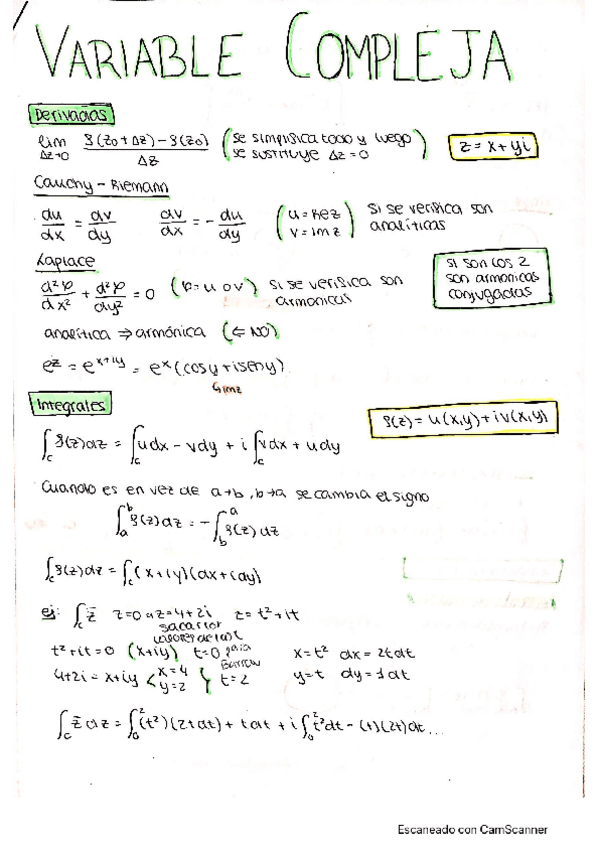 VARIABLE COMPLEJA
Derivadas
lim Δz→0 f(z0+Δz)-f(z0) / Δz (se simplifica todo y luego se sustituye Δz=0) z = x+yi
Cauchy-Riemann
du/dx = dv/dy dv/dx = - du/dy (u = Re z v = Im z) si se verifica son analíticas
Laplace
d²φ/dx² + d²φ/dy² = 0 (φ = u o v) si se verifica son armonicas
si son los 2 son armonicas conjugadas
analítica ⇒ armónica (⇐ NO)
e^z = e^(x+iy) = e^x (cosy + iseny)
↳ imz
Integrales
f(z) = u(x,y) + iv(x,y)
∫c f(z)dz = ∫c udx - vdy + i ∫c vdx + udy
Cuando es en vez de a→b, b→a se cambia el signo
∫a^b f(z) dz = - ∫b^a f(z) dz
∫c f(z)dz = ∫c (x+iy)(dx+idy)
ej: ∫c z̄ z=0 a z=4+2i z = t²+it
sacar los valores de la t para Barrow
t²+it=0 (x+iy) t=0 x=t² dx = 2tdt
4+2i = x+iy < x=4 y=2 } t=2 y=t dy = 1dt
∫c z̄ dz = ∫0^2 (t²)(2tdt) + tdt + i ∫0^2 t²dt - (t)(2t)dt ...
Escaneado con CamScanner